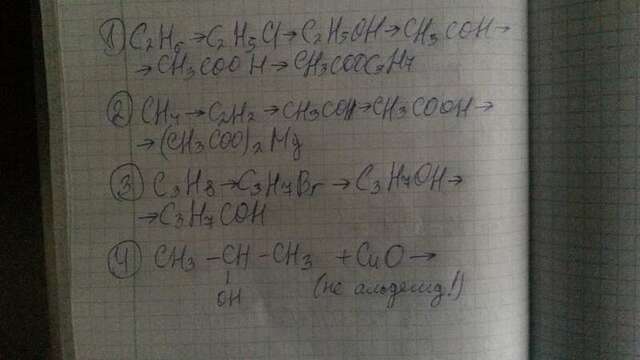 1) C2H6 → C2H5Cl → C2H5OH → CH3COH →
→ CH3COOH → CH3COOC3H7
2) CH4 → C2H2 → CH3COH → CH3COOH →
→ (CH3COO)2Mg
3) C3H8 → C3H7Br → C3H7OH →
→ C3H7COH
4) CH3 – CH – CH3 + CuO →
OH (не альдегид!)